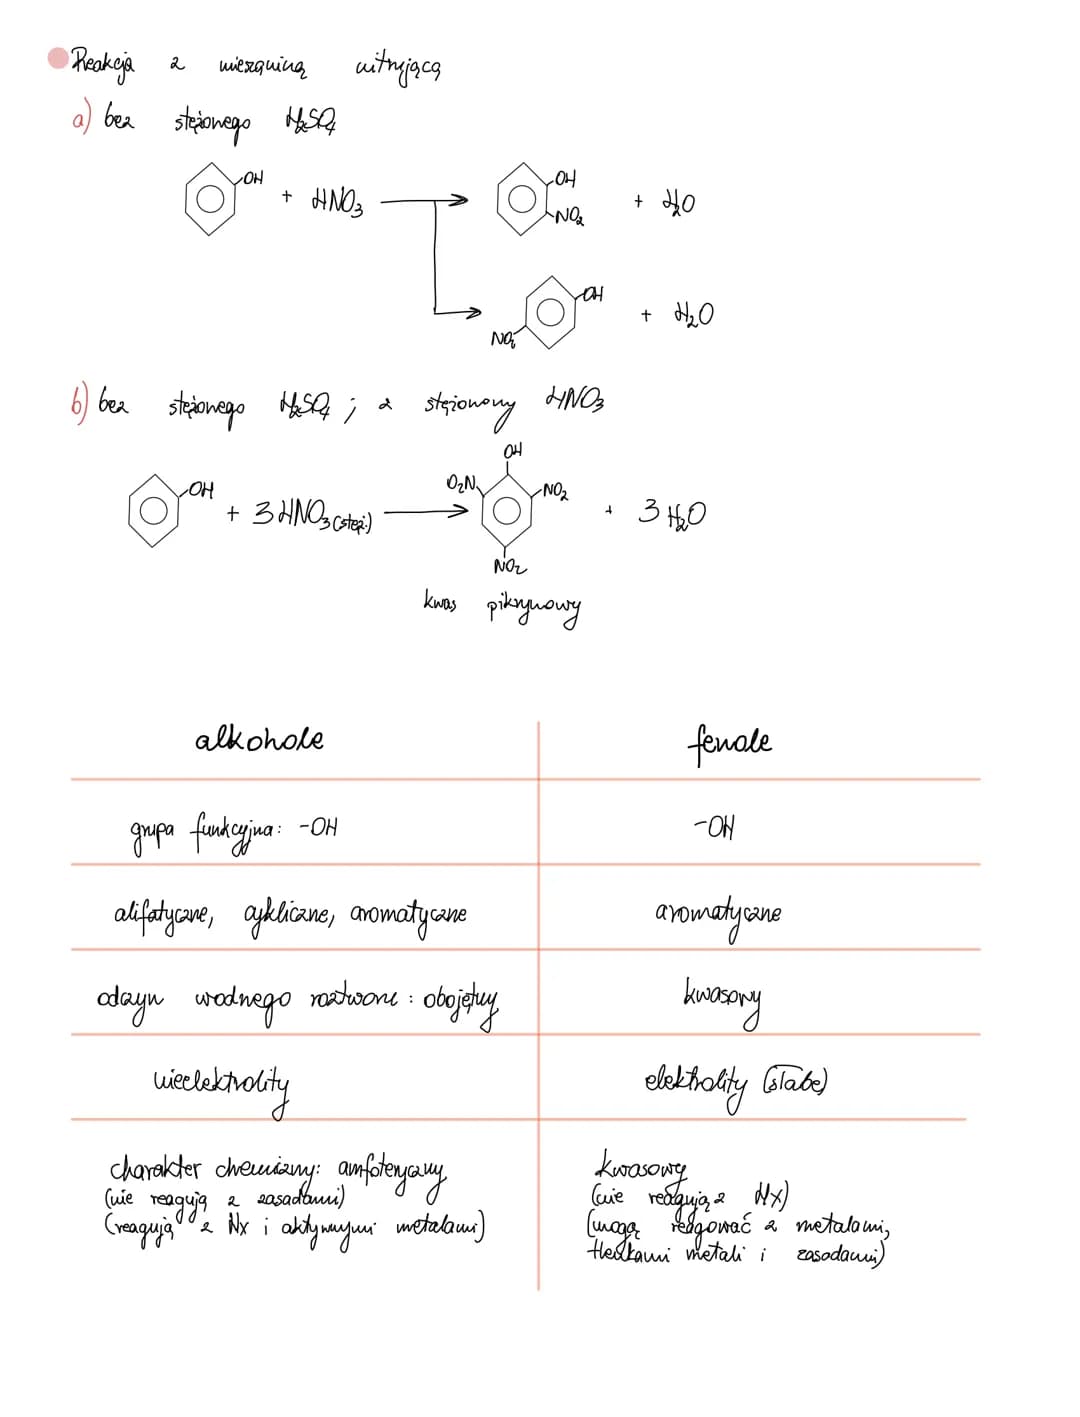 Reakcja z mieszaniną nitrującą
a) bez stężonego H₂SO₄
-OH + HNO₃ → -OH -NO₂ + H₂O
NO₂ -OH + H₂O
b) bez stężonego H₂SO₄ ; z stężonony HNO₃
OH
-OH + 3HNO₃(stęż.) → O₂N -NO₂ + 3H₂O
NO₂
kwas pikrynowy
alkohole fenole
grupa funkcyjna: -OH -OH
alifatyczne, cykliczne, aromatyczne aromatyczne
odczyn wodnego roztworu: obojętny kwasowy
nieelektrolity elektrolity (słabe)
charakter chemiczny: amfoteryczny kwasowy
(nie reagują z zasadami) (nie reagują z HX)
(reagują z HX i aktywnymi metalami) (mogą reagować z metalami,
tlenkami metali i zasadami)